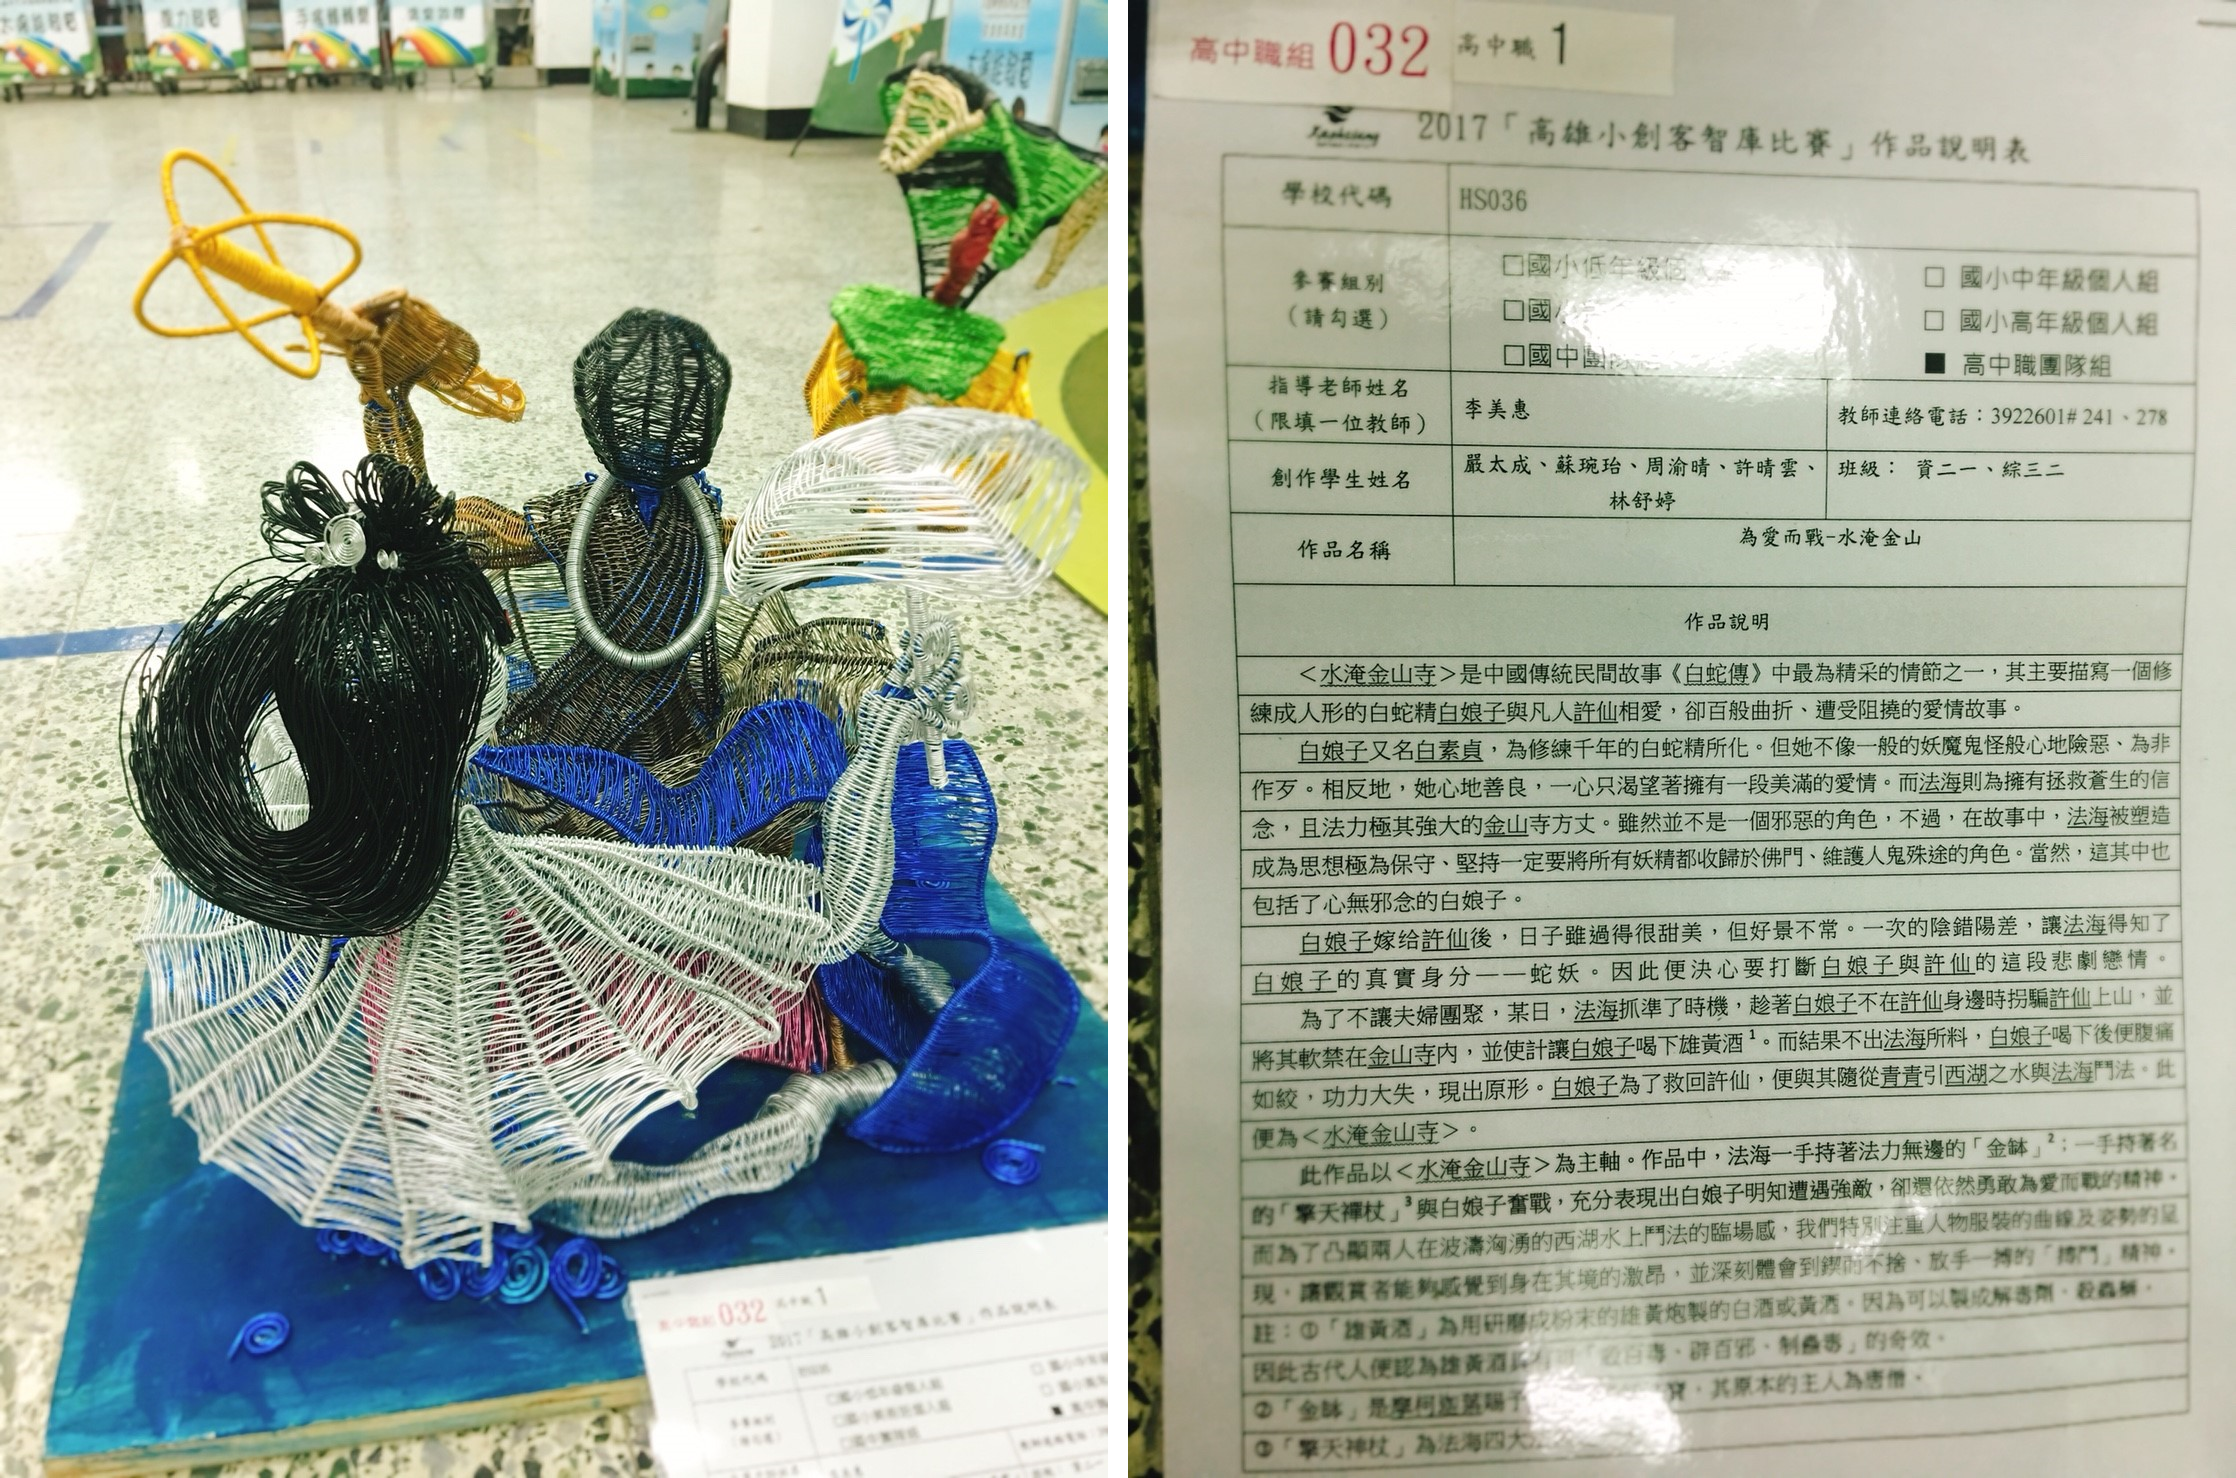 高中職組 032 高中職 1
2017「高雄小創客智庫比賽」作品說明表
學校代碼 HS036
參賽組別
(請勾選)
□國小低年級個人組 □ 國小中年級個人組
□ 國小高年級個人組
□國中團隊組 ■ 高中職團隊組
指導老師姓名
(限填一位教師)
李美惠
教師連絡電話：3922601# 241、278
創作學生姓名
嚴太成、蘇琬珆、周渝晴、許晴雲、
林舒婷
班級： 資二一、綜三二
作品名稱 為愛而戰-水淹金山
作品說明
＜水淹金山寺＞是中國傳統民間故事《白蛇傳》中最為精采的情節之一，其主要描寫一個修
練成人形的白蛇精白娘子與凡人許仙相愛，卻百般曲折、遭受阻撓的愛情故事。
白娘子又名白素貞，為修練千年的白蛇精所化。但她不像一般的妖魔鬼怪般心地險惡、為非
作歹。相反地，她心地善良，一心只渴望著擁有一段美滿的愛情。而法海則為擁有拯救蒼生的信
念，且法力極其強大的金山寺方丈。雖然並不是一個邪惡的角色，不過，在故事中，法海被塑造
成為思想極為保守、堅持一定要將所有妖精都收歸於佛門、維護人鬼殊途的角色。當然，這其中也
包括了心無邪念的白娘子。
白娘子嫁給許仙後，日子雖過得很甜美，但好景不常。一次的陰錯陽差，讓法海得知了
白娘子的真實身分——蛇妖。因此便決心要打斷白娘子與許仙的這段悲劇戀情。
為了不讓夫婦團聚，某日，法海抓準了時機，趁著白娘子不在許仙身邊時拐騙許仙上山，並
將其軟禁在金山寺內，並使計讓白娘子喝下雄黃酒1。而結果不出法海所料，白娘子喝下後便腹痛
如絞，功力大失，現出原形。白娘子為了救回許仙，便與其隨從青青引西湖之水與法海鬥法。此
便為＜水淹金山寺＞。
此作品以＜水淹金山寺＞為主軸。作品中，法海一手持著法力無邊的「金缽」2；一手持著名
的「擎天禪杖」3與白娘子奮戰，充分表現出白娘子明知遭遇強敵，卻還依然勇敢為愛而戰的精神。
而為了凸顯兩人在波濤洶湧的西湖水上鬥法的臨場感，我們特別注重人物服裝的曲線及姿勢的呈
現，讓觀賞者能夠感覺到身在其境的激昂，並深刻體會到鍥而不捨、放手一搏的「搏鬥」精神。
註：①「雄黃酒」為用研磨成粉末的雄黃炮製的白酒或黃酒。因為可以製成解毒劑、殺蟲藥，
因此古代人便認為雄黃酒 百毒、辟百邪、制蠱毒」的奇效。
②「金缽」是摩柯迦葉賜予 寶，其原本的主人為唐僧。
③「擎天神杖」為法海四大
032 高中職 1
2017「高雄小創客智庫比賽」作品說明表
學校代碼